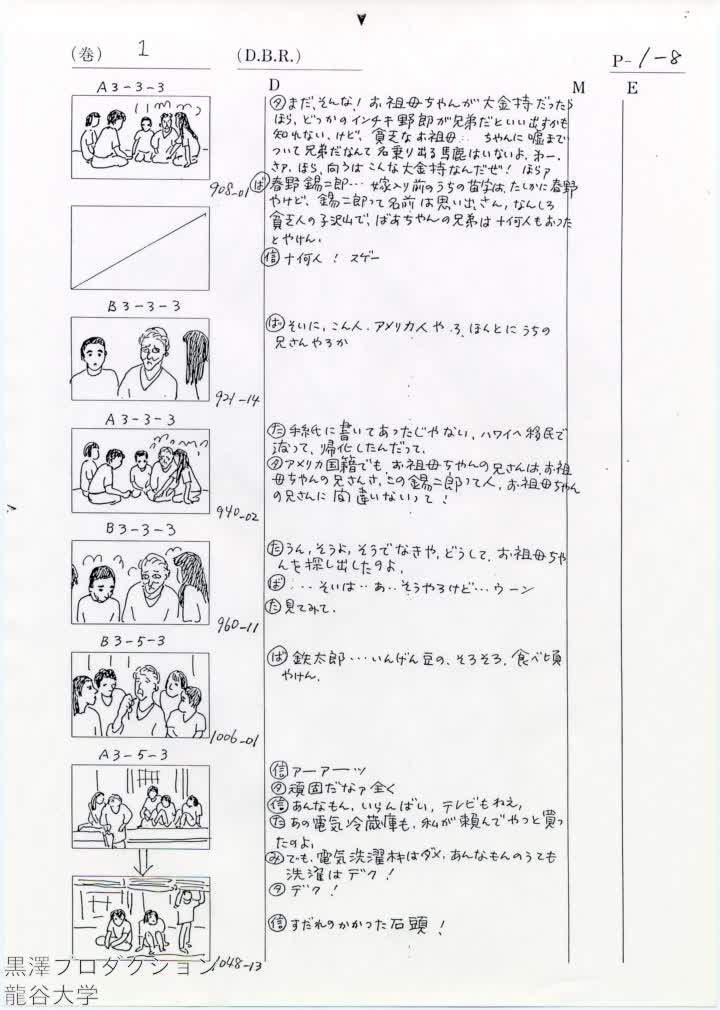 (巻) 1 (D.B.R.) P-1-8
D M E
A3-3-3
908-01
タ まだ、そんな! お祖母ちゃんが大金持だったら
ほら、どっかのインチキ野郎が兄弟だといい出すかも
知れない、けど、貧乏なお祖母… ちゃんに嘘まで
ついて兄弟だなんて名乗り出る馬鹿はいないよ、わー、
さァ、ほら、向うはこんな大金持なんだぜ! ほらァ
ば 春野錫二郎… 嫁入り前のうちの苗字は、たしかに春野
やけど、錫二郎って名前は思い出さん、なんしろ
貧乏人の子沢山で、ばあちゃんの兄弟は十何人もおった
とやけん、
信 十何人! スゲー
B3-3-3
921-14
ば そいに、こん人、アメリカ人やろ、ほんとにうちの
兄さんやろか
A3-3-3
940-02
た 手紙に書いてあったじゃない、ハワイへ移民で
渡って、帰化したんだって、
タ アメリカ国籍でも、お祖母ちゃんの兄さんは、お祖
母ちゃんの兄さんさ、この錫二郎って人、お祖母ちゃん
の兄さんに間違いないって!
B3-3-3
960-11
た うん、そうよ、そうでなきゃ、どうして、お祖母ちゃ
んを探し出したのよ、
ば …そいは‥あ‥そうやろけど…ウーン
た 見てみて、
B3-5-3
1006-01
ば 鉄太郎…いんげん豆の、そろそろ、食べ頃
やけん、
A3-5-3
信 アーアーーッ
タ 頑固だなァ全く
信 あんなもん、いらんばい、テレビもねえ、
た あの電気冷蔵庫も、私が頼んでやっと買っ
たのよ、
み でも、電気洗濯機はダメ、あんなもんのうても
洗濯はデク!
タ デク!
信 すだれのかかった石頭!
1048-13
黒澤プロダクション
龍谷大学